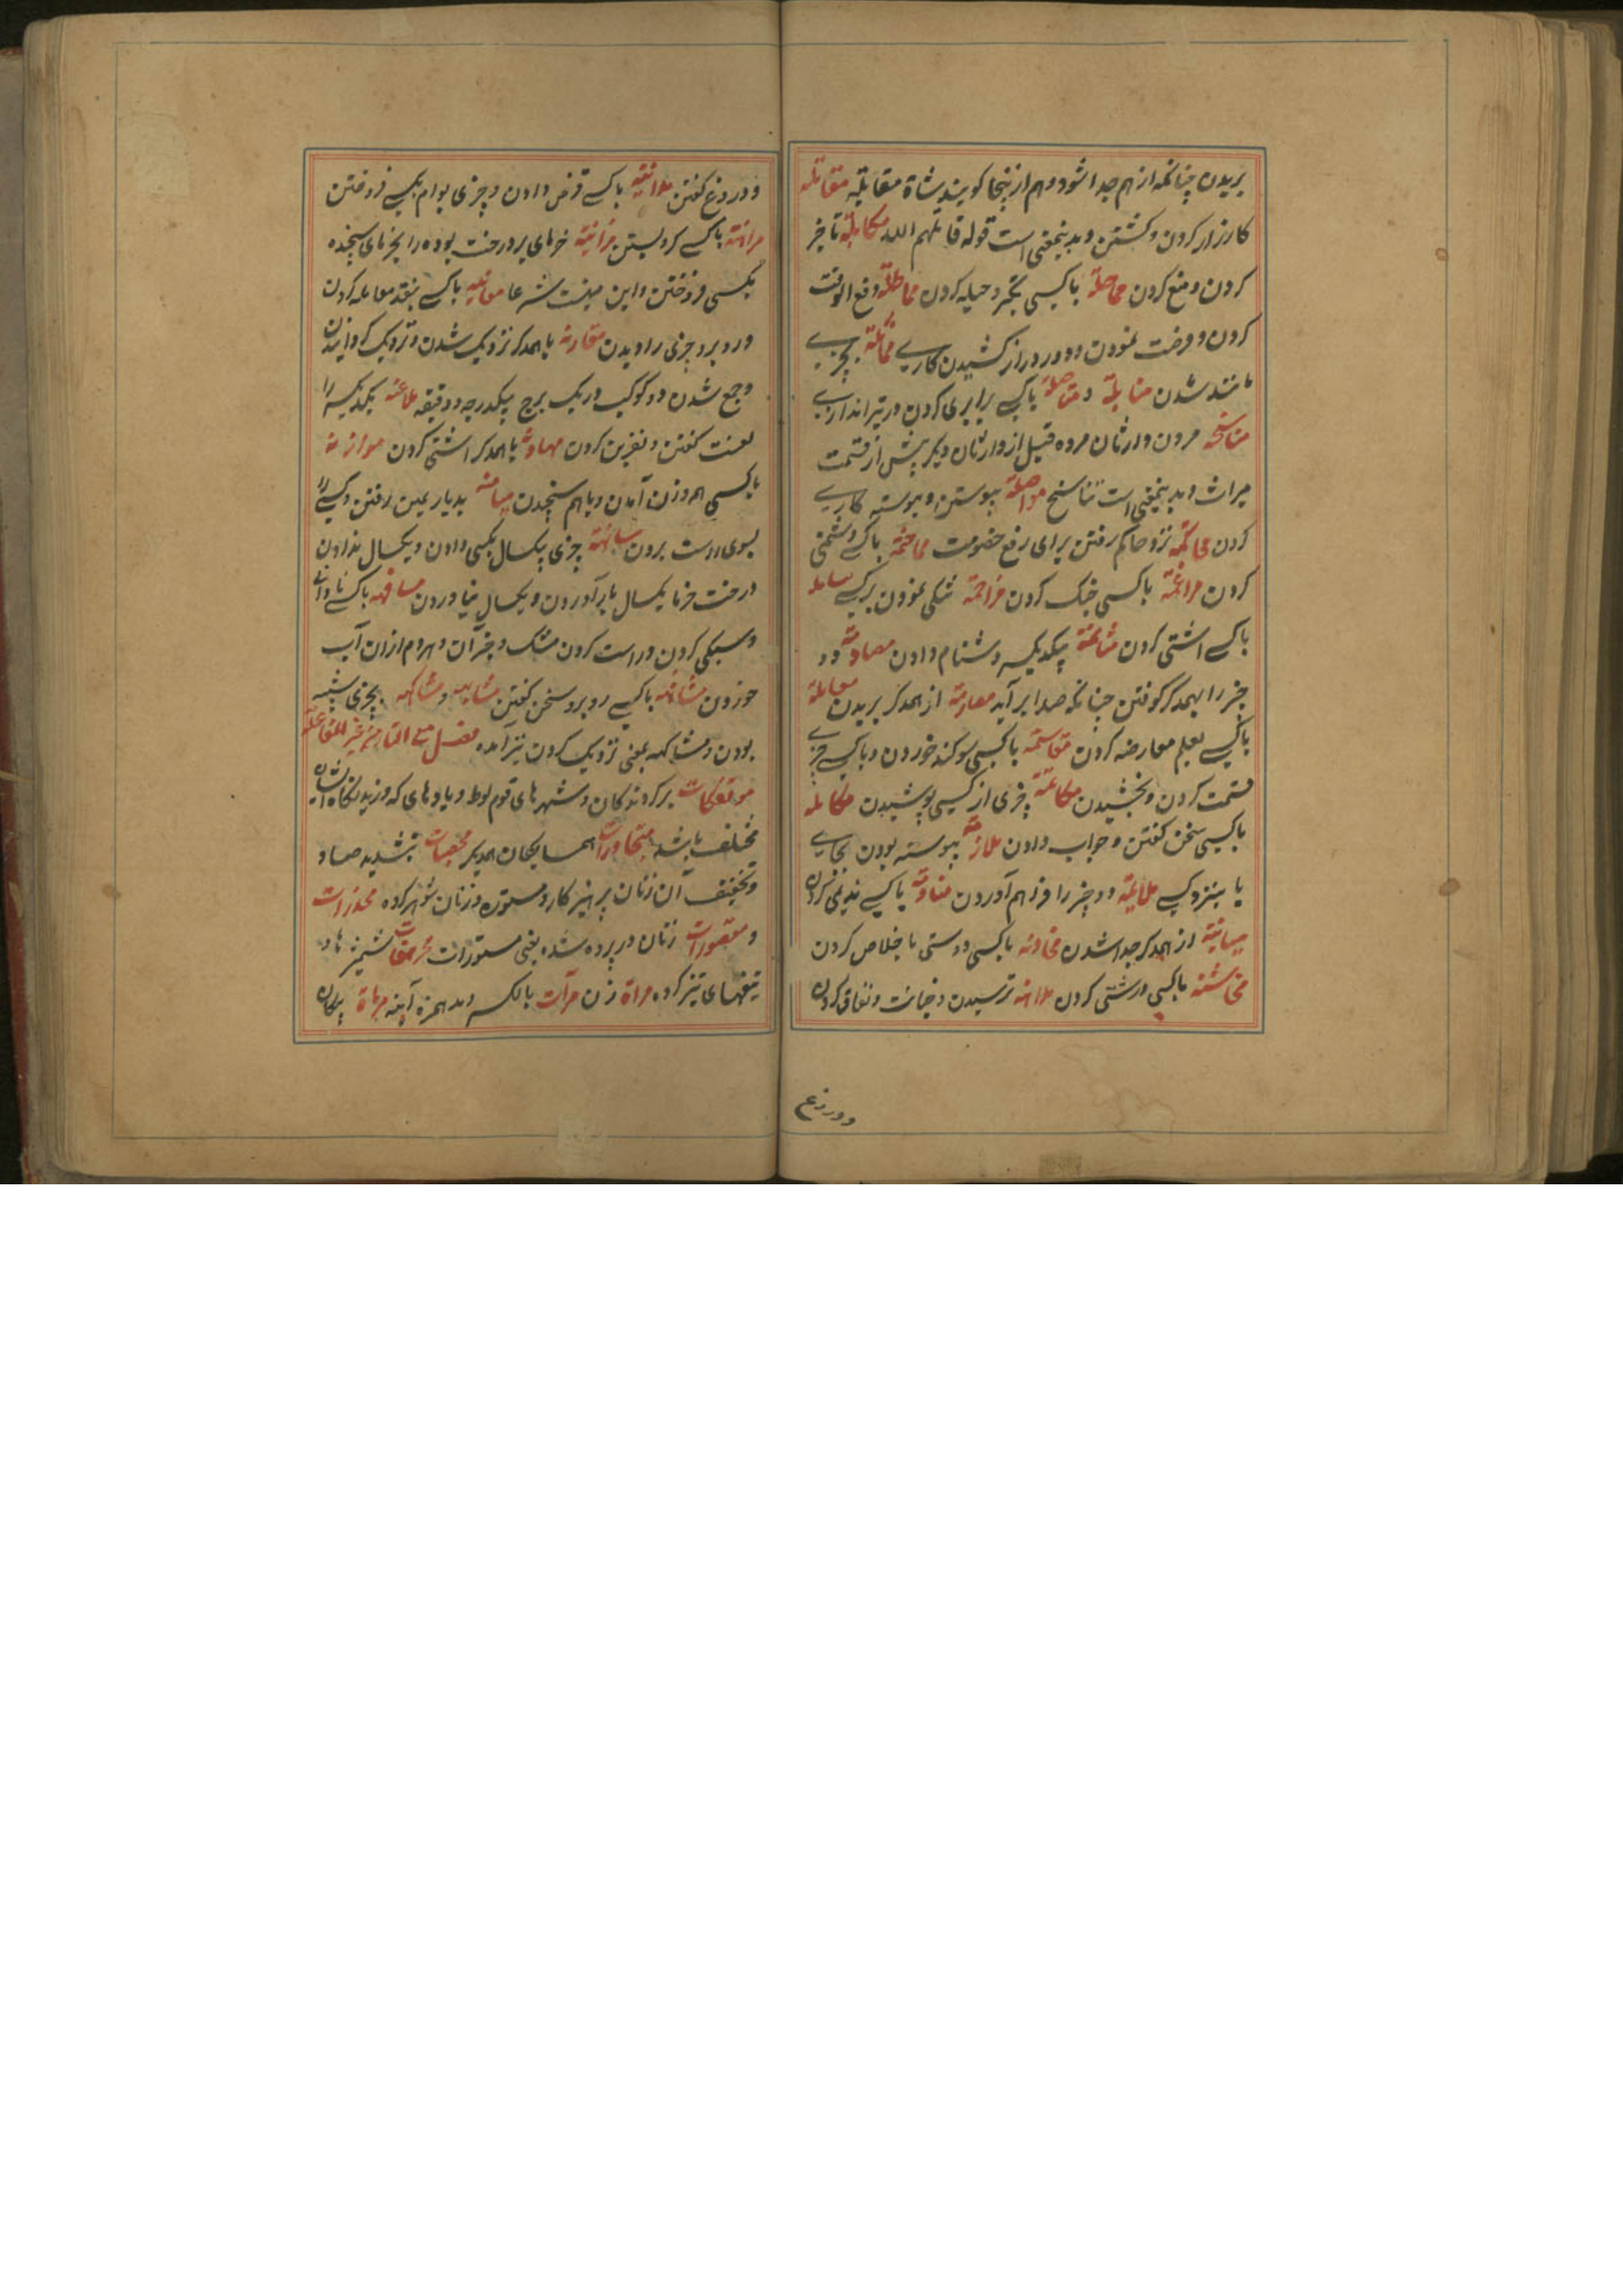 بریدن چنانکه از هم جدا شود و هم از ینجا کویند شاة مقابله مقاتله
کارزار کردن و کشتن و بدینمعنی است قوله قاتلهم الله مکابله تاخیر
کردن و منع کردن مماحله باکسی بمکر و حیله کردن مماطله دفع الوقت
کردن و فرصت نمودن و دور و دراز کشیدن کاری مماثله بچیزی
مانند شدن منابله و مناضله باکسی برابری کردن در تیر اندازی
مناسخه مردن وارثان مرده قبل از وارثان دیکر پیش از قسمت
میراث و بدینمعنی است تناسخ مواصله پیوستن و پیوسته کاری
کردن محاکمه نزد حاکم رفتن برای رفع خصومت مخاصمه باکسی دشمنی
کردن مراغمه باکسی جنک کردن مزاحمه تنکی نمودن بر کسی مسالمه
باکسی اشتی کردن مشاتمه یکدیکر دشنام دادن مصادمه دو
چیز را بهمدکر کوفتن چنانکه صدا برآید مصارمه از همدکر بریدن معالمه
باکسی بعلم معارضه کردن مقاسمه باکسی سوکند خوردن و باکسی چیزی
قسمت کردن و بخشیدن مکاتمه چیزی از کسی پوشیدن مکالمه
باکسی سخن کفتن و جواب دادن ملازمه پیوسته بودن بجای
یا بنزد کسی ملایمه دو چیز را فراهم آوردن منادمه باکسی ندیمی کردن
مباینه از همدکر جدا شدن مخادنه باکسی دوستی با خلاص کردن
مخاشنه باکسی درشتی کردن مداهنه ترسیدن و خیانت و نفاق کردن
و دروغ
و دروغ کفتن مداینه باکسی قرض دادن و چیزی بوام بکسی فروختن
مراهنه باکسی کرو بستن مزابنه خرمای بر درخت بوده را بخرمای سنجیده
بکسی فروختن و این نیست شرعا معاینه باکسی بنقد معامله کردن
و رو برو چیزی را دیدن مقارنه باهمدکر نزدیک شدن و نزدیک کردانیدن
و جمع شدن دو کوکب در یک برج بیکدرجه و دقیقه ملاعنه یکدیکر را
لعنت کفتن و نفرین کردن مهادنه باهمدکر اشتی کردن موازنه
باکسی هموزن آمدن و باهم سنجیدن میامنه بدیار یمین رفتن و کسی را
بسوی راست بردن مسانهه چیزی یکسال بکسی دادن و یکسال ندادن
درخت خرما یکسال بار آوردن و یکسال نیاوردن مسافهه باکسی نادانی
و سبکی کردن و راست کردن مشک و جز آن و هر دم از ان آب
خوردن مشافهه باکسی روبرو سخن کفتن مشابهه و مشاکهه بچیزی شبیه
بودن و مشاکهه بمعنی نزدیک کردن نیز آمده فصل مع التا من غیر المفاعلة
موتفکات برکردندکان و شهرهای قوم لوط و بادهای که وزیدنکاه ایشان
مختلف باشد متجاورات همسایکان همدیکر محصنات بتشدید صاد
و تخفیف آن زنان پرهیزکار و مستوره و زنان شوهر کرده مخدرات
و مقصورات زنان در پرده شده یعنی مستورات مرهفات شمشیرها و
تیغهای تیز کرده مراة زن مرآت بالکسر و مد همزه آینه مرماة پیکان